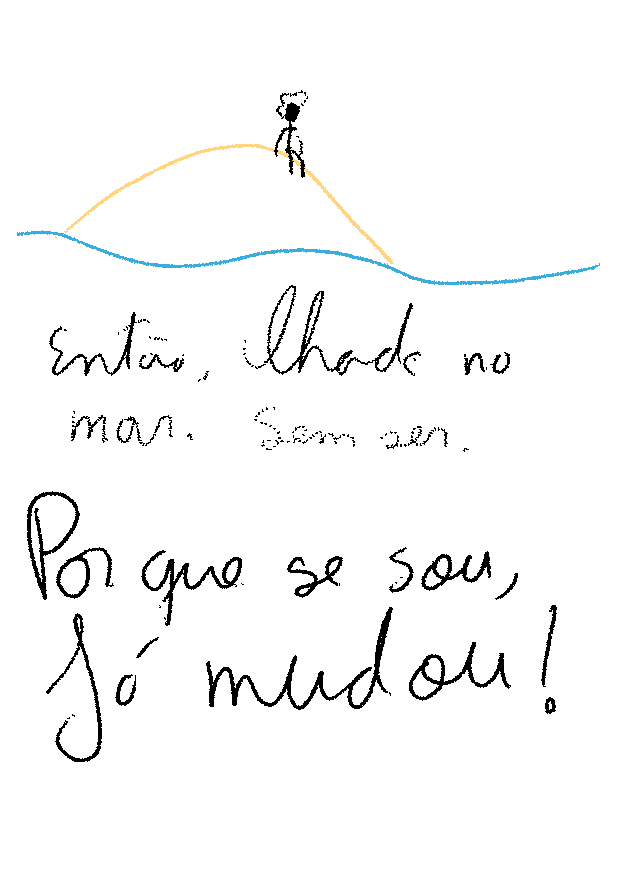 Então, ilhado no
mar. Sem ser.
Porque se sou,
Já mudou!